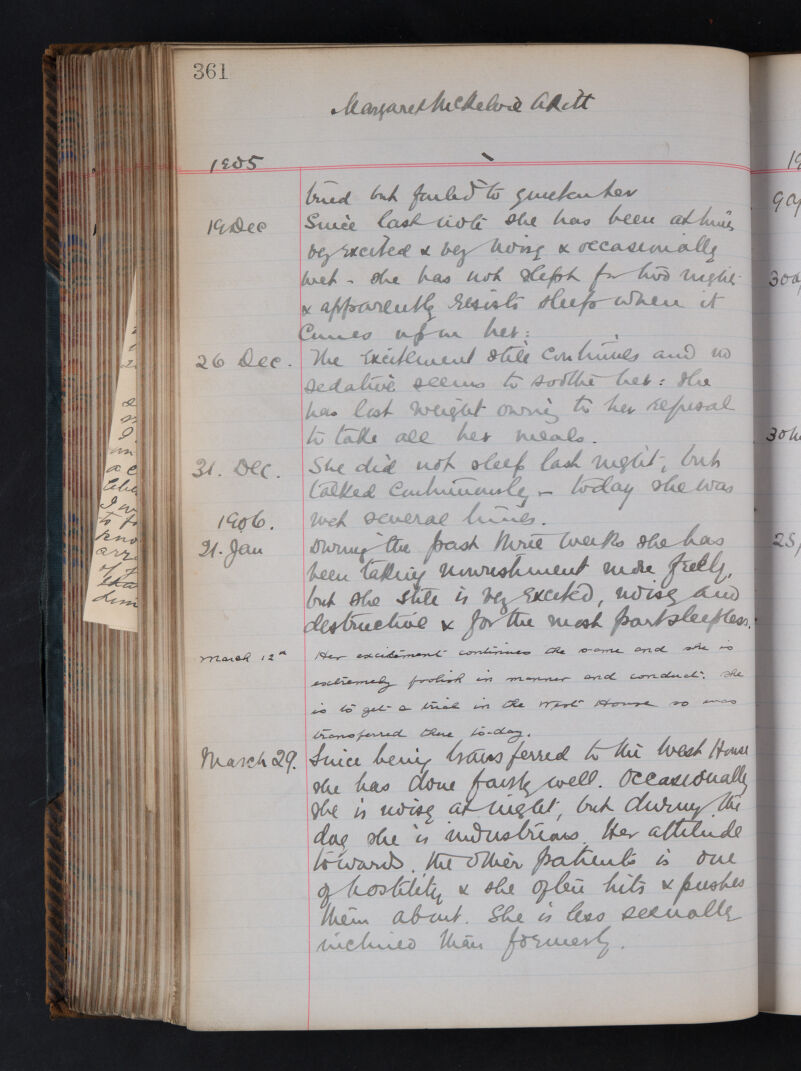 361
Margaret McKelvie or Aitt
1905
tried but failed to quieten her
19 Dec Since last note she has been at times
very excited & very noisy & occasionally
wet - she has not slept for two nights
& apparently resists sleep when it
comes upon her:
26 Dec. The excitement still continues and no
sedative seems to soothe her: she
has lost weight owing to her refusal
to take all her meals.
31. Dec. She did not sleep last night, but
talked continuously - today she was
1906. wet several times.
21. Jan During the past three weeks she has
been taking nourishment more freely,
but she still is very excited, noisy and
destructive & for the most part sleepless.
March 12th Her excitement continues the same and she is
extremely foolish in manner and conduct. She
is to get a trial in the West House so was
transferred there to-day.
March 29. Since being transferred to the West House
she has done fairly well. Occasionally
she is noisy at night, but during the
day she is industrious. Her attitude
towards the other patients is one
of hostility & she often hits & pushes
them about. She is less sexually
inclined than formerly.